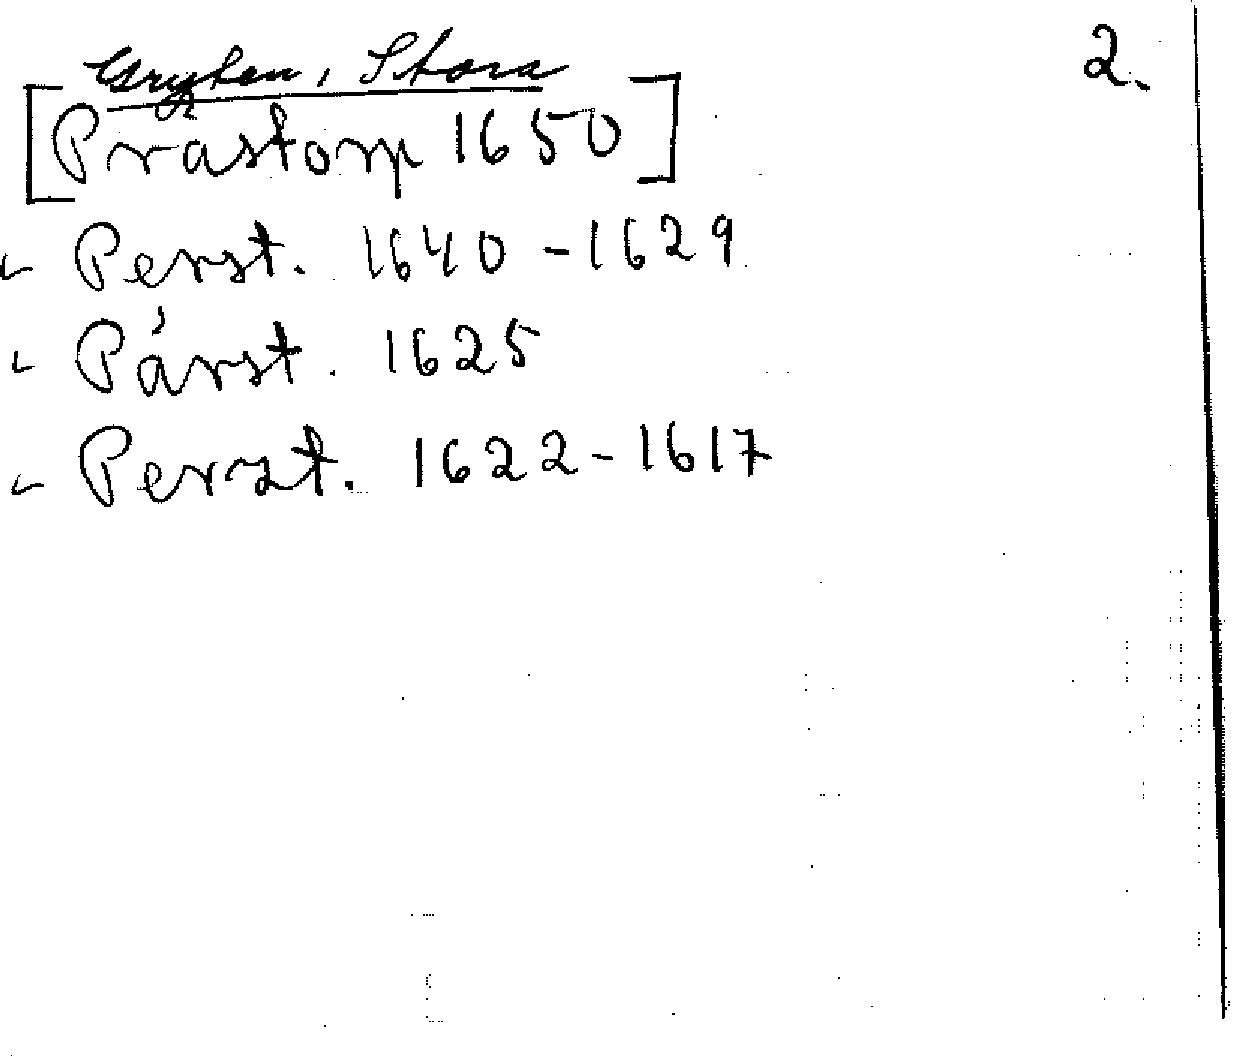 Gryten, Stora 2.
[Prästorp 1650]
- Perst. 1640-1629
- Pärst. 1625
- Perst. 1622-1617